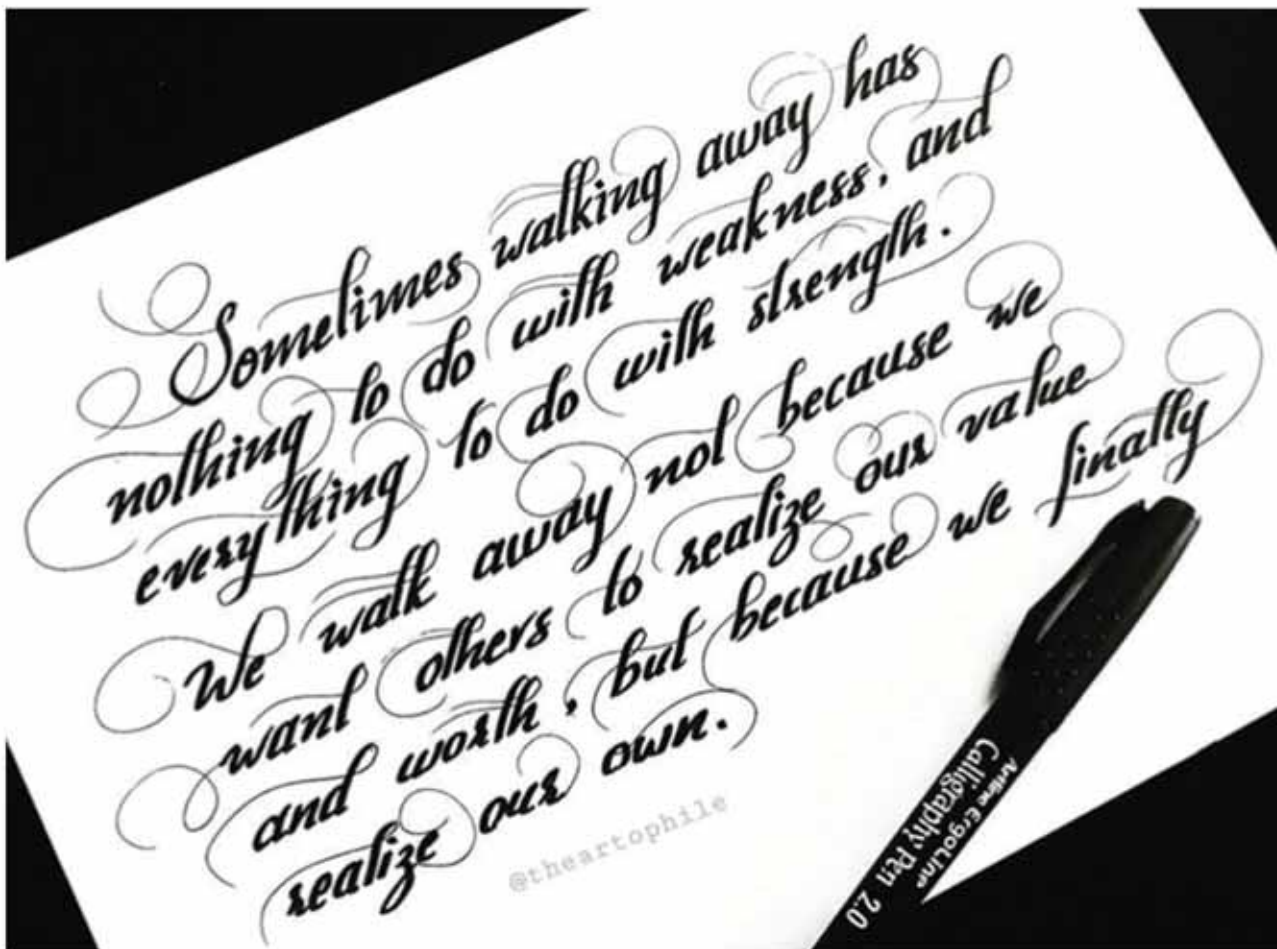 Sometimes walking away has
nothing to do with weakness, and
everything to do with strength.
We walk away not because we
want others to realize our value
and worth, but because we finally
realize our own.
@theartophile
Artline ErgoLine
Calligraphy Pen 2.0